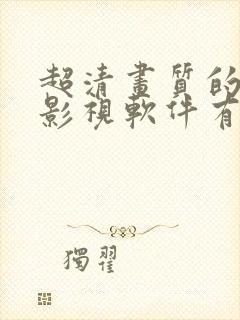 超清畫質的
影視軟件有
獨翟